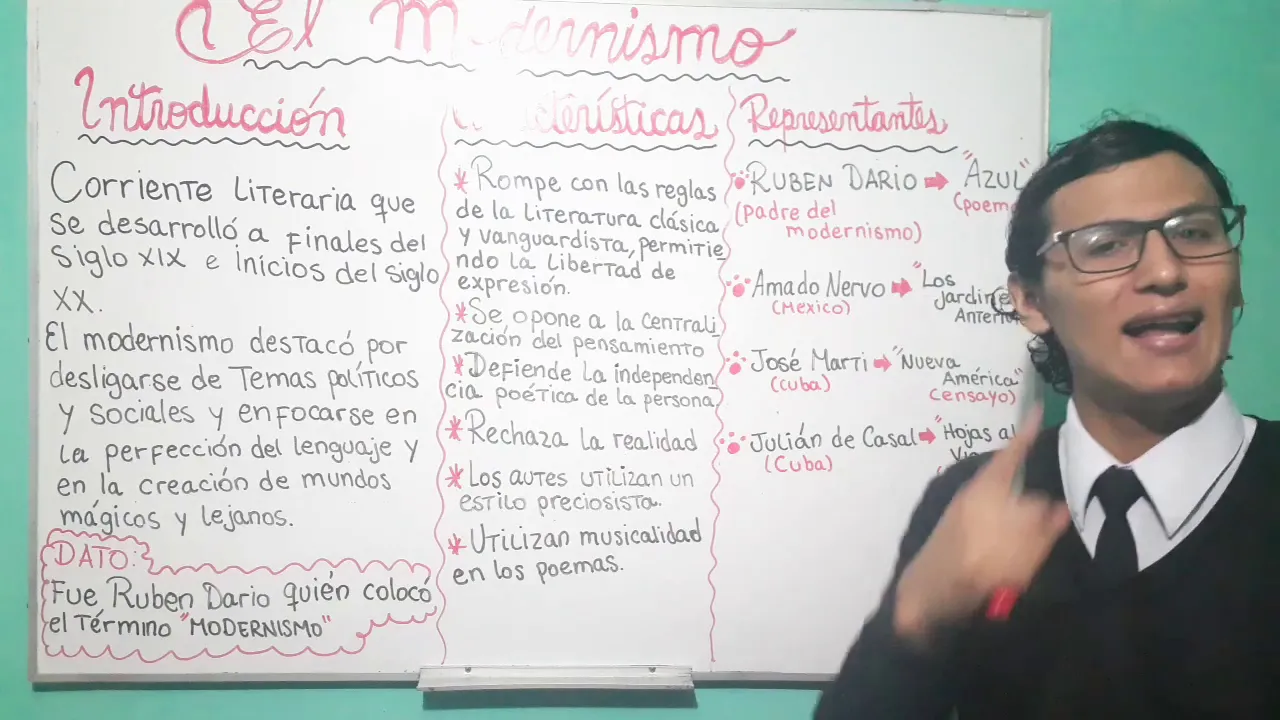 El Modernismo
Introducción
Corriente literaria que
se desarrolló a finales del
siglo XIX e inicios del siglo
XX.
El modernismo destacó por
desligarse de temas políticos
y sociales y enfocarse en
la perfección del lenguaje y
en la creación de mundos
mágicos y lejanos.
DATO:
Fue Ruben Dario quién colocó
el término "MODERNISMO"
Características
* Rompe con las reglas
de la literatura clásica
y vanguardista, permitie
ndo la libertad de
expresión.
* Se opone a la centrali
zación del pensamiento
* Defiende la independen
cia poética de la persona
* Rechaza la realidad
* Los autes utilizan un
estilo preciosista.
* Utilizan musicalidad
en los poemas.
Representantes
RUBEN DARIO → "AZUL"
(padre del (poem
modernismo)
Amado Nervo → "Los
(Mexico) jardin
José Marti → "Nueva
(Cuba) América"
(ensayo)
Julián de Casal → "Hojas al
(Cuba)